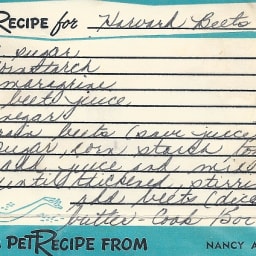 RECIPE for Harvard Beets
sugar
cornstarch
margarine
beet juice
vinegar
beets (save juice)
sugar, corn starch to
add juice and mix
until thickened, stirri
add beets (dice
butter - Cook 150
PET RECIPE FROM NANCY A